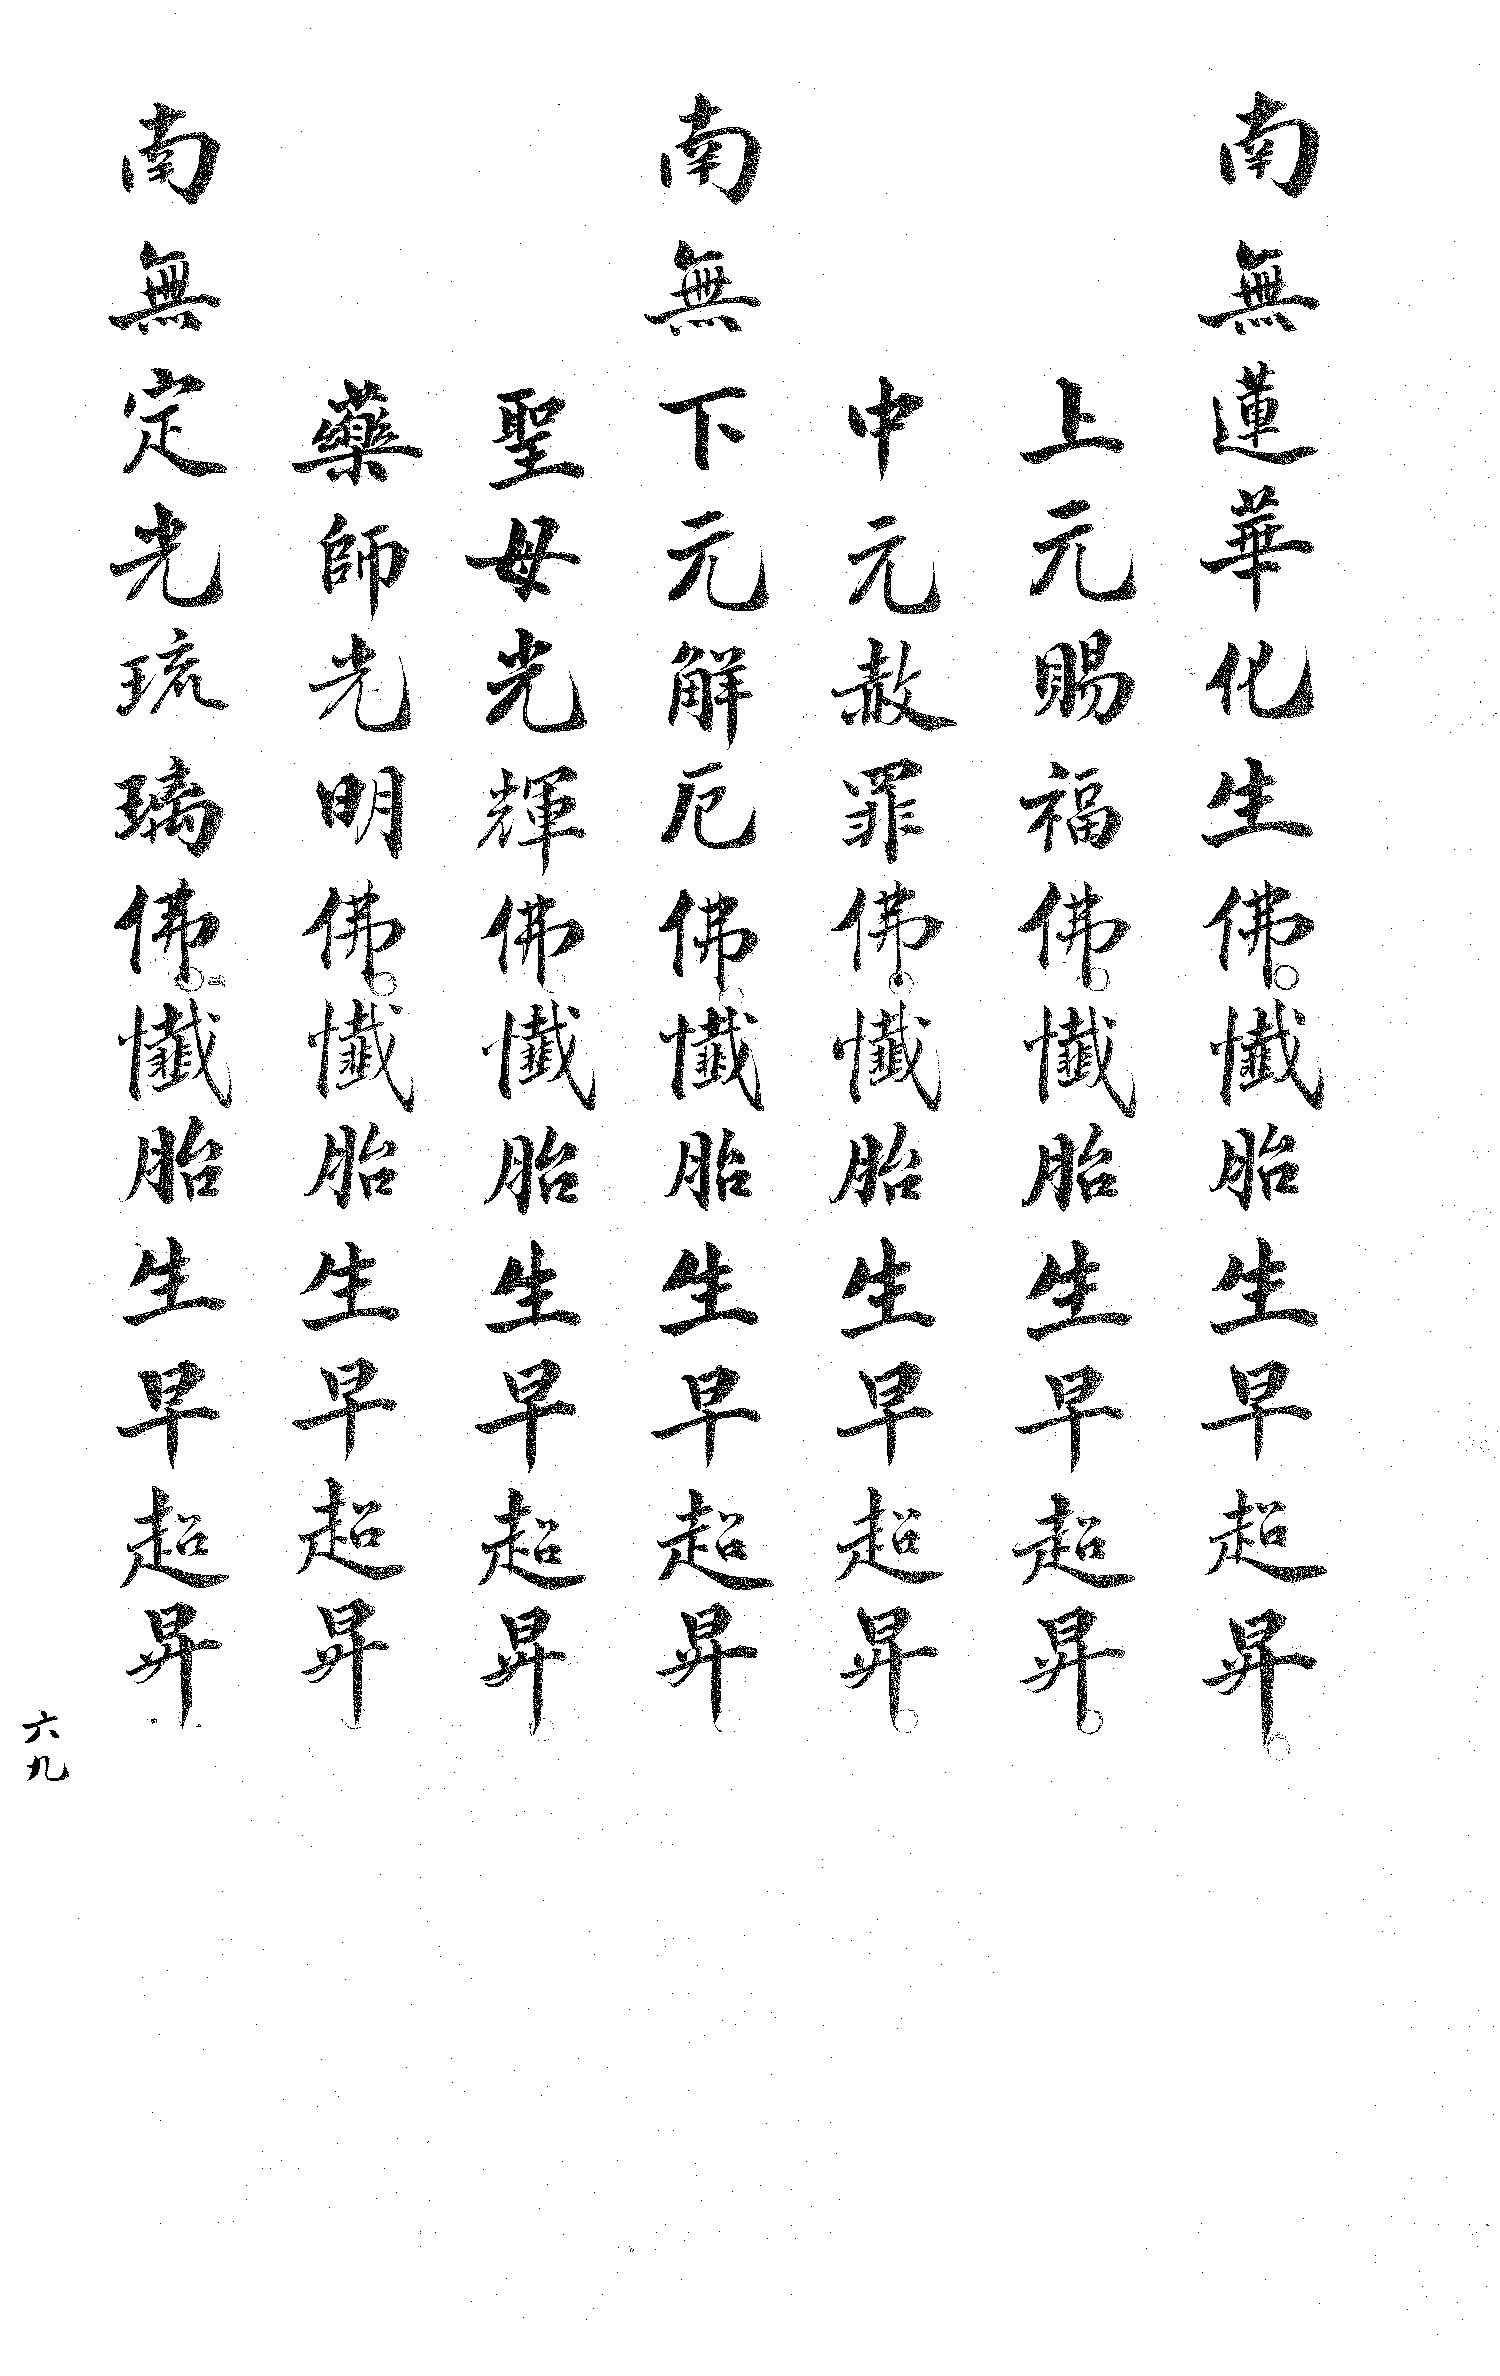 南無蓮華化生佛。懺胎生早超昇。
上元賜福佛。懺胎生早超昇。
中元赦罪佛。懺胎生早超昇。
南無下元解厄佛。懺胎生早超昇。
聖母光輝佛。懺胎生早超昇。
藥師光明佛。懺胎生早超昇。
南無定光琉璃佛。懺胎生早超昇
六九